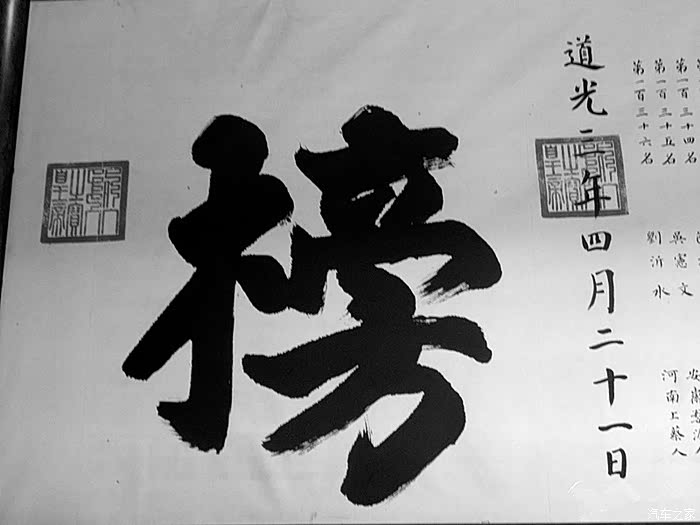 第一百三十四名
第一百三十五名
吳憲文
安徽
第一百三十六名
劉沂水
河南上蔡人
道光二年四月二十一日
榜
皇帝之寶
皇帝之寶
汽车之家